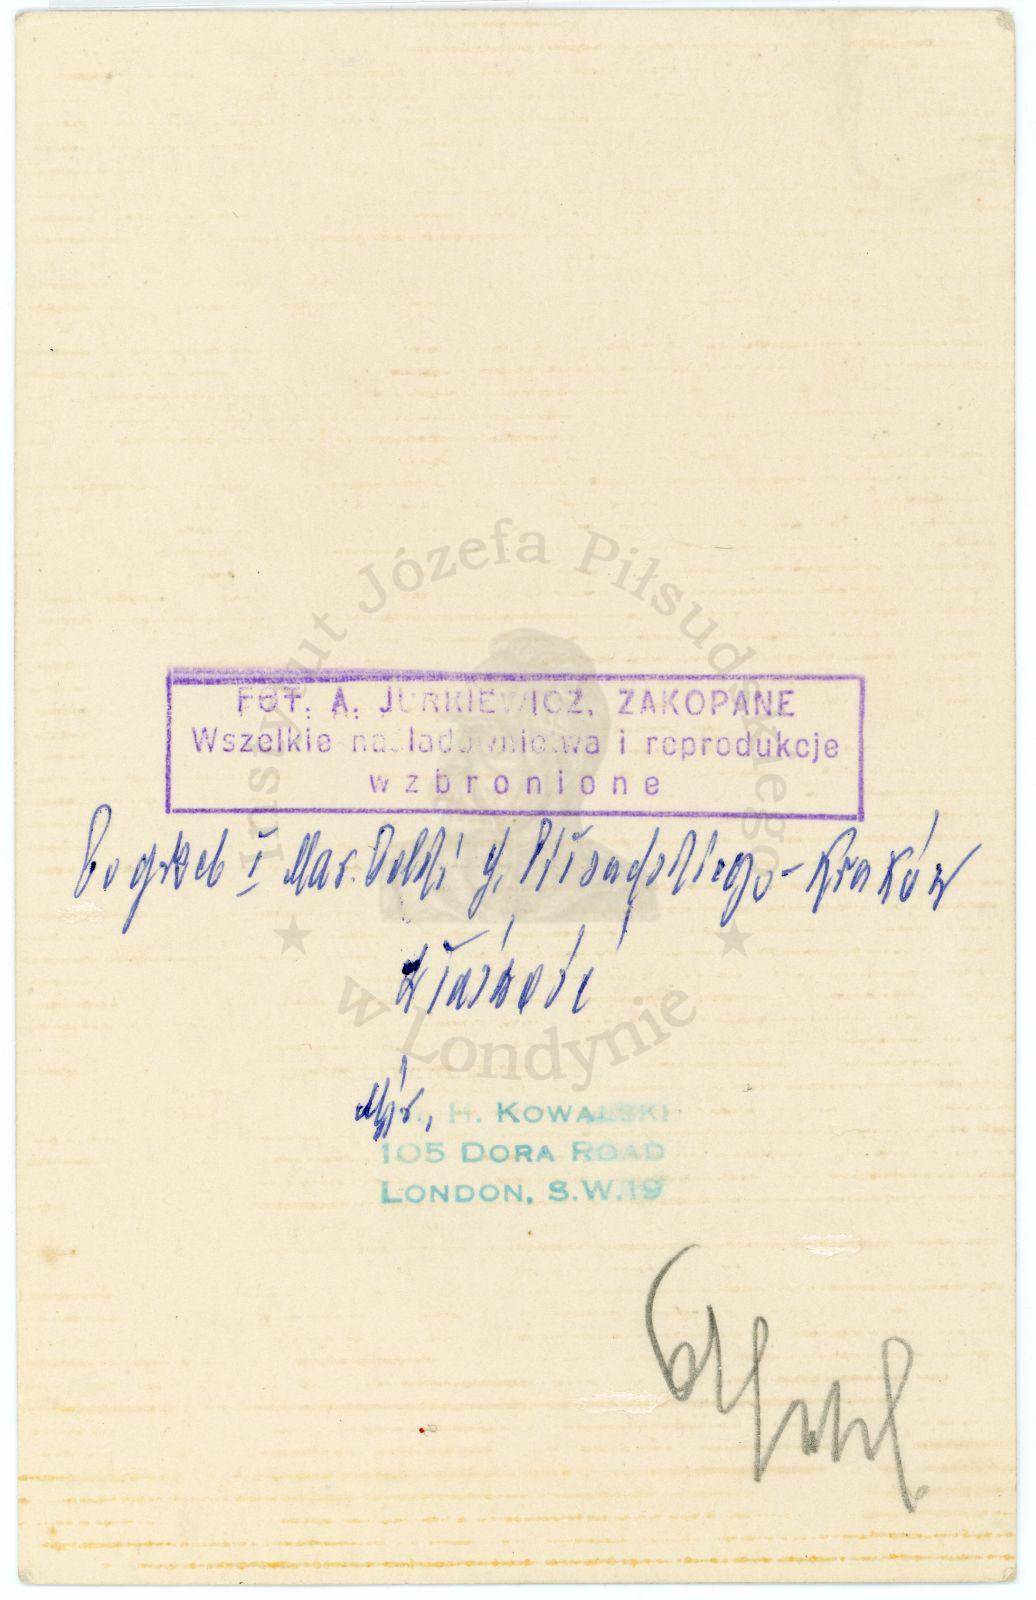 Instytut Józefa Piłsudskiego
FOT. A. JURKIEWICZ, ZAKOPANE
Wszelkie naśladownictwa i reprodukcje
wzbronione
Pogrzeb I Mar. Polski J. Piłsudskiego - Kraków
własność
w Londynie
Mjr. H. KOWALSKI
105 DORA ROAD
LONDON, S.W.19